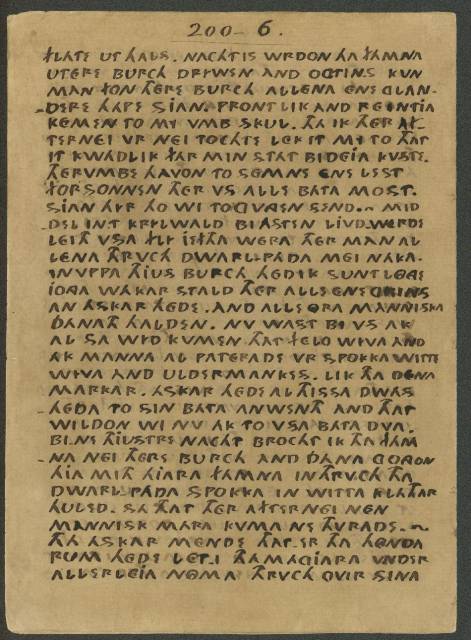 200- 6.
FLATE UT HAVS. NACHTIS WRDON THA FAMNA
UTERE BURCH DRYWEN AND OGTINS KVN
MAN THON THERE BURCH ALLENA ENE GLAN-
DERE HAPE SIAN. PRONTLIK AND REINTIA
KEMEN TO MY VMB SKUL. THA IK THER AF-
TERNEI VR NEI TOCHTE LEK IT MY TO THAT
IT KWADLIK FAR MIN STAT BIDEIA KVSTE.
THERVMBE HAVON TO SEMNE ENE LEST
FORSONNEN THER VS ALLE BATA MOST.
SIAN HYR HO WI TO GVNGEN SEND. ~ MID
DEL INT KRYLWALD BI ASTEN LIVDWERDE
LEITH VSA FLY IEFTHA WERA THER MAN AL
LENA THRVCH DWARL-PADA MEI NAKA.
INVPPA THIUS BURCH HEDIK SUNT LONGE
IONGA WAKAR STALD THER ALLE ENE GRINS
AN ASKAR HEDE. AND ALLE ORA MANNISKA
DANATH HALDEN. NV WAST BI VS AK
AL SA WYD KVMEN THAT FELO WIVA AND
AK MANNA AL PATERADE VR SPOKKA WITTE
WIVA AND ULDERMANKES. LIK THA DENA
MARKAR. ASKAR HEDE AL THISSA DWAS
HEDA TO SIN BATA ANWENTH AND THAT
WILDON WI NV AK TO VSA BATA DVA.
BI.NE THIUSTRE NACHT BROCHT IK THA FAM
NA NEI THERE BURCH AND DANA GONGON
HIA MITH HIARA FAMNA IN THRVCH THA
DWARL-PADA SPOKKA IN WITTA KLATHAR
HULED. SA THAT THER AFTERNEI NEN
MANNISK MARA KVMA NE THVRADE. ~
THA ASKAR MENDE THAT.ER THA HONDA
RUM HEDE LET.I THA MAGIARA VNDER
ALLERLEIA NOMA THRVCH OVIR SINA